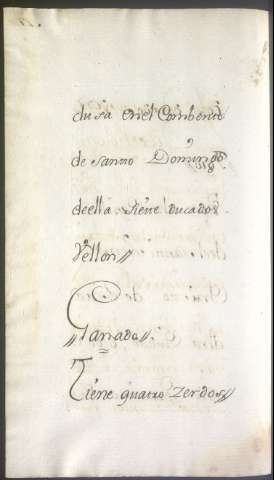 dusa en el Combento
de Santto Domingo
de ella siete ducados
Vellon //
// Ganado //
Tiene quatro zerdos //